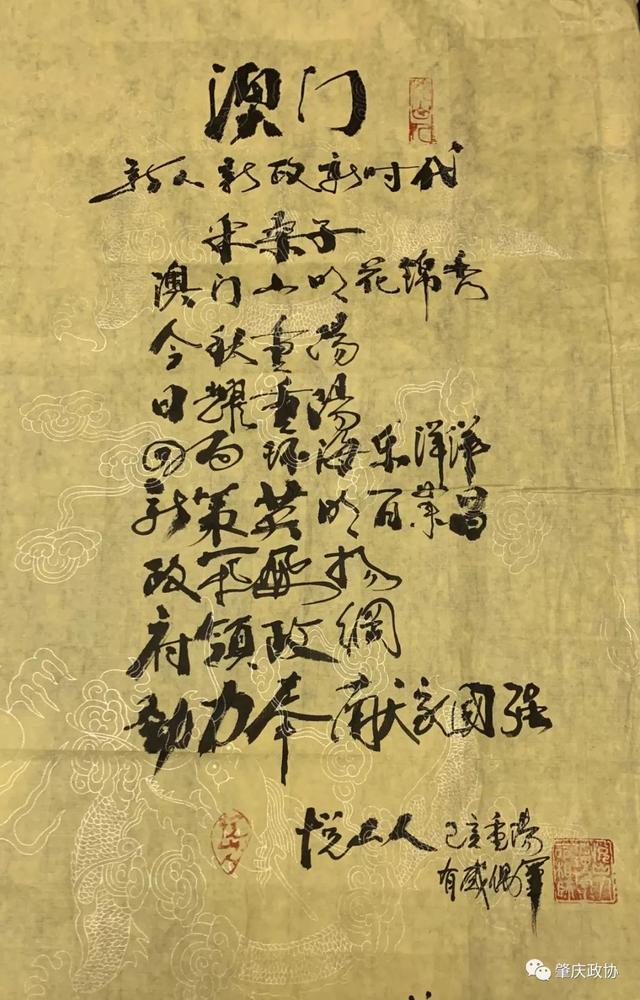 澳门
新人新政新时代
采桑子
澳门山明花绵秀
今秋重阳
日耀重阳
四面环海乐洋洋
新策英明百业昌
政令飞扬
府领政纲
勤力奉献家国强
悦山人
己亥重陽
有感偶笔
肇庆政协